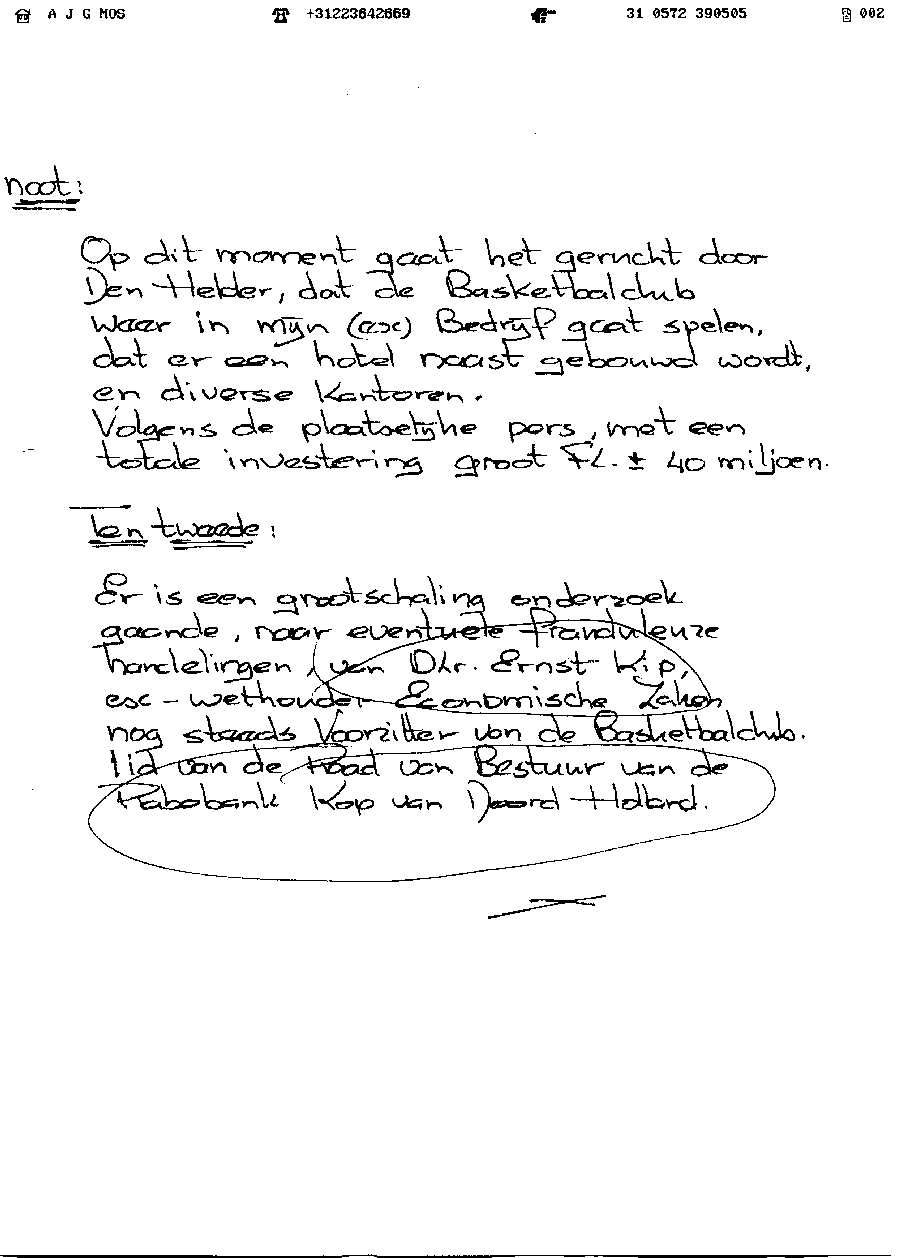 A J G MOS +31223642669 31 0572 390505 002
noot:
Op dit moment gaat het gerucht door
Den Helder, dat de Basketbalclub
waar in mijn (ex) Bedrijf gaat spelen,
dat er een hotel naast gebouwd wordt,
en diverse Kantoren.
Volgens de plaatselijke pers, met een
totale investering groot FL. ± 40 miljoen.
Ten tweede:
Er is een grootschaling onderzoek
gaande, naar eventuele frauduleuze
handelingen, van Dhr. Ernst Kip,
ex-wethouder Economische Zaken
nog steeds Voorzitter van de Basketbalclub.
lid van de Raad van Bestuur van de
Rabobank Kop van Noord Holland.